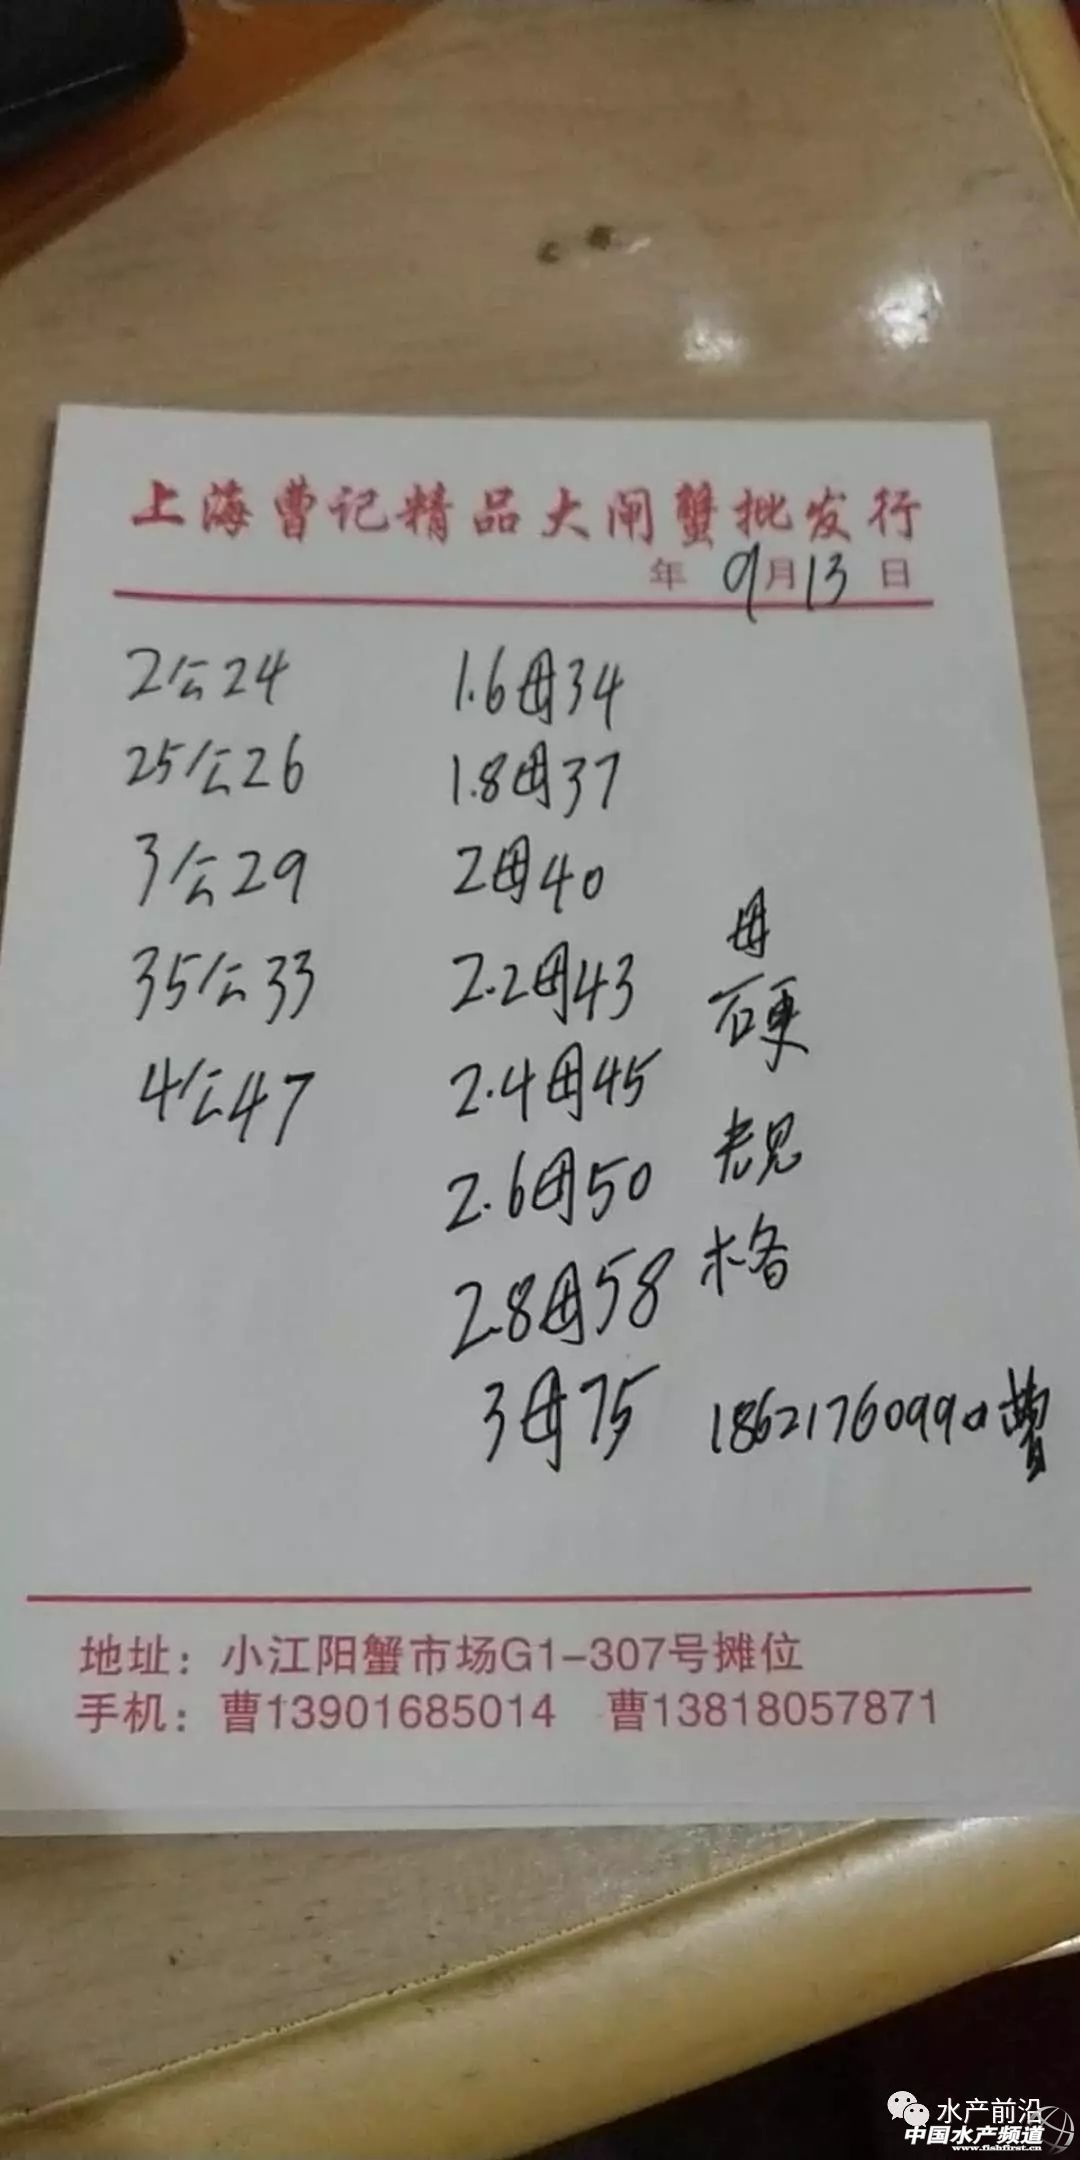 上海曹记精品大闸蟹批发行
年 9月13日
2公24
25公26
3公29
35公33
4公47
1.6母34
1.8母37
2母40
2.2母43
2.4母45
2.6母50
2.8母58
3母75
母
硬
规
格
18621760990曹
地址：小江阳蟹市场G1-307号摊位
手机：曹13901685014 曹13818057871
水产前沿
中国水产频道
www.fishfirst.cn